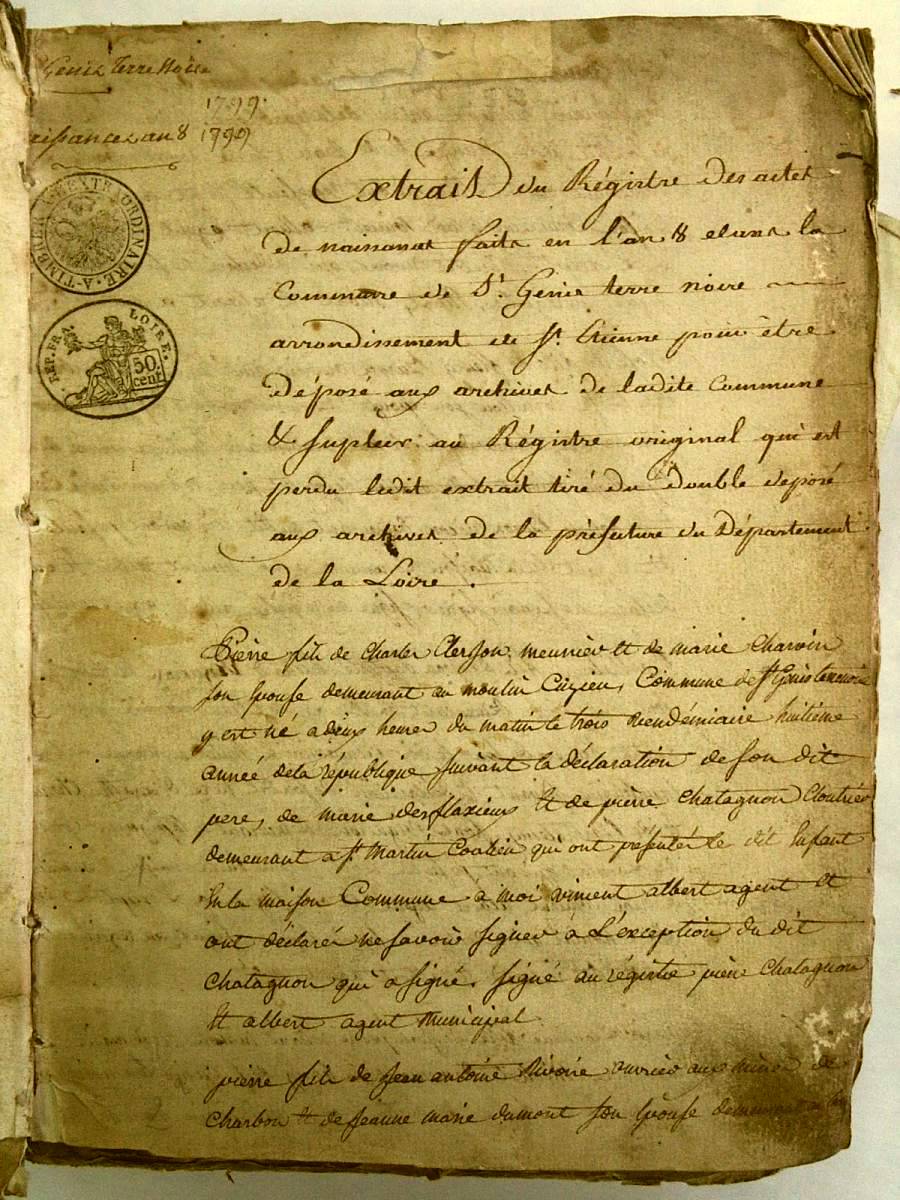 Genis Terre Noire
1799.
naissances an 8 1799
A TIMBRER A L'EXTRAORDINAIRE
REP. FRA. LOIRE.
50 cent.
Extrait du Régistre des actes
de naissances faits en l'an 8 dans la
Commune de St. Genis terre noire
arrondissement de St. Etienne pour être
déposé aux archives de ladite Commune
& supléer au Régistre original qui est
perdu ledit extrait tiré du double déposé
aux archives de la préfecture du Département
de la Loire.
Pierre fils de Charles Clerjon meunier et de marie Charvin
son Epouse demeurant au moulin Cuzieu, Commune de St Genis terrenoire
y est né a deux heures du matin le trois vendémiaire huitieme
année de la république suivant la déclaration de son dit
pere, de marie des flaxieux et de pierre chatagnon Cloutier
demeurant a St. Martin Coalieu qui ont présenté le dit Enfant
En la maison Commune à moi vincent albert agent et
ont déclarés ne savoir signer à L'exception du dit
chatagnon qui a signé, signé au régistre pierre Chatagnon
et albert agent municipal
pierre fils de Jean antoine Rivoire ouvrier aux mines de
Charbon et de Jeanne marie dumont son Epouse demeurant